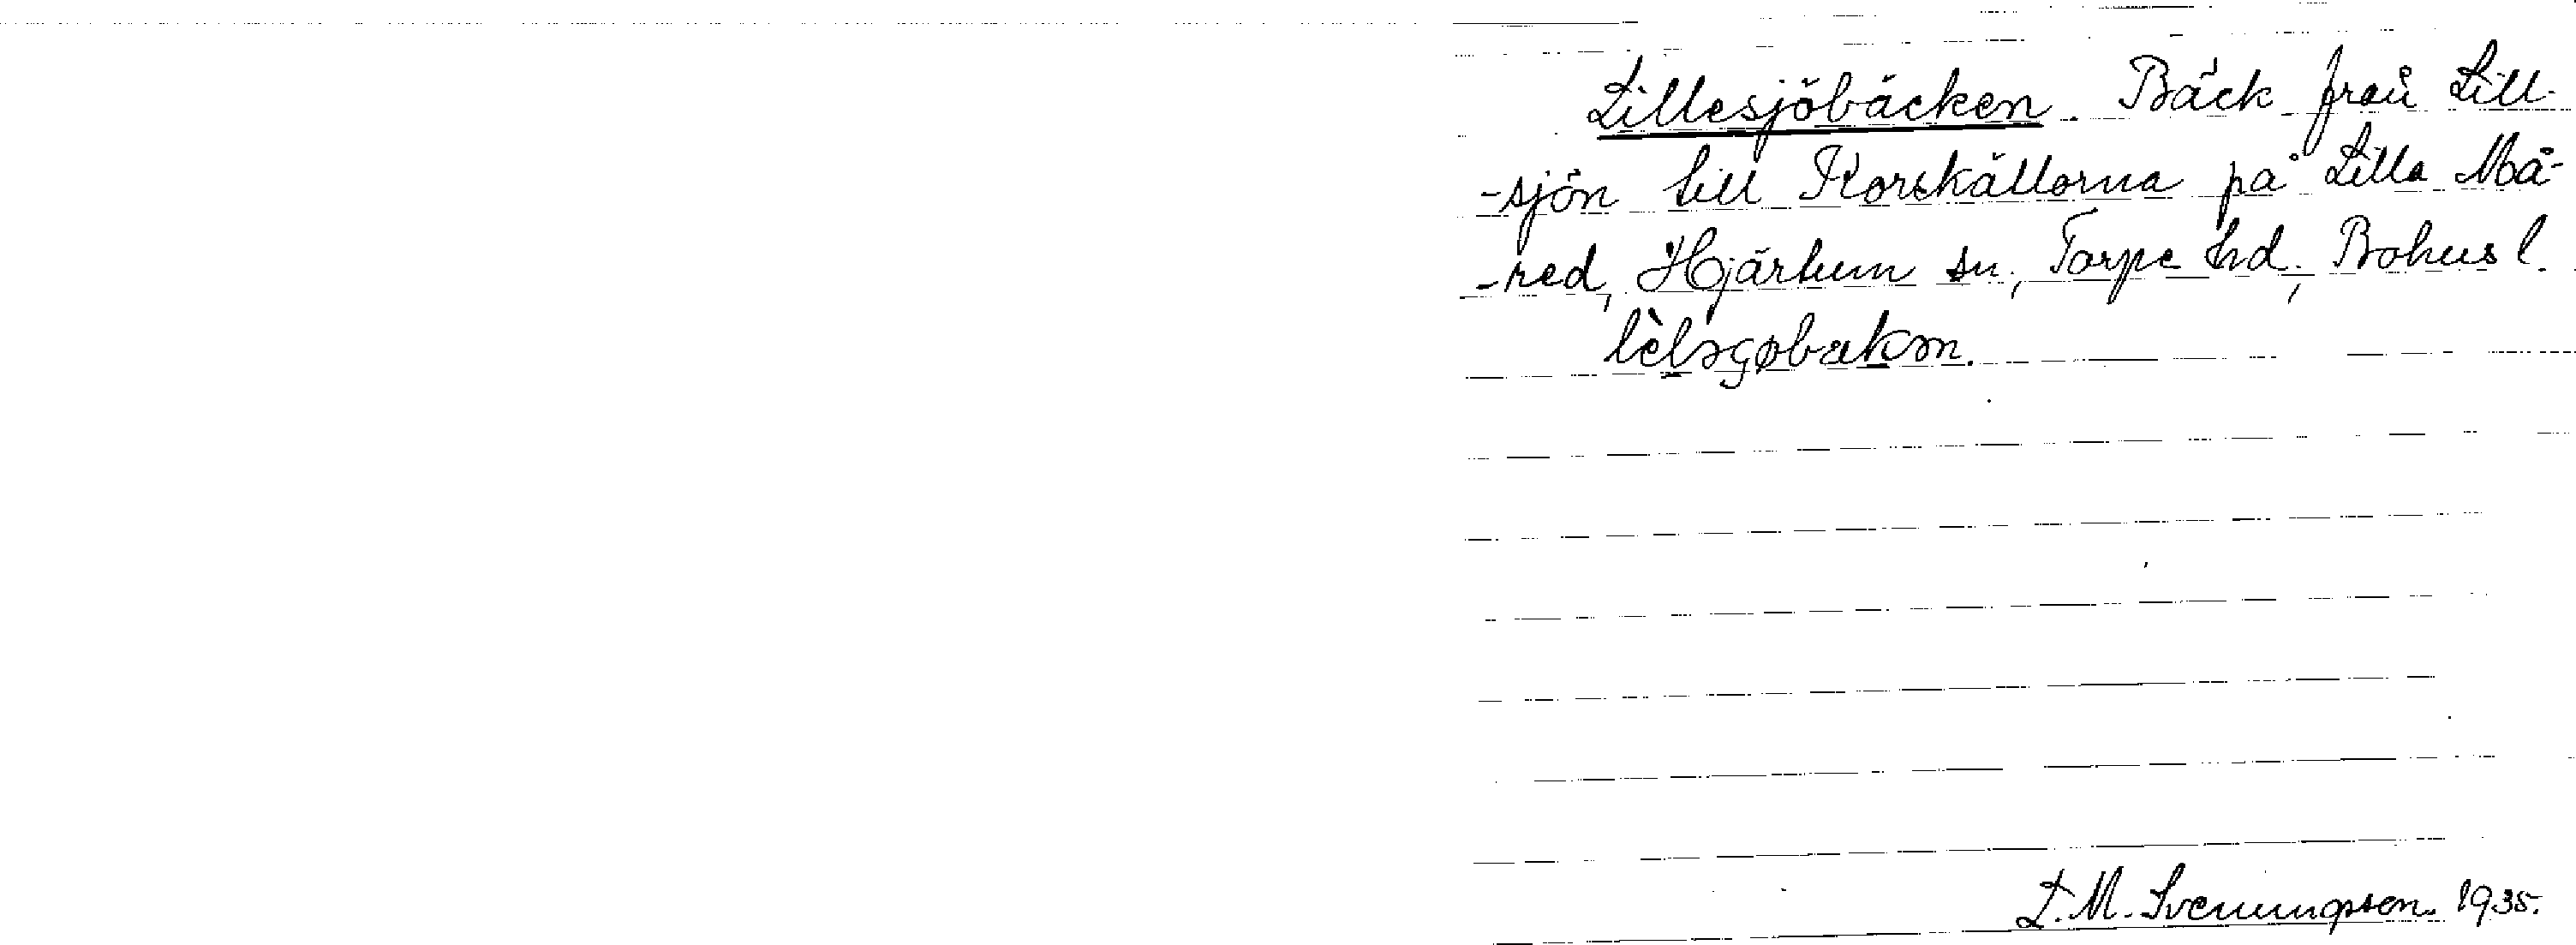 Lillesjöbäcken. Bäck från Lill-
-sjön till Korskällorna på Lilla Må-
-red, Hjärtum sn, Torpe hd, Bohusl.
L. M. Svenungsson 1935.